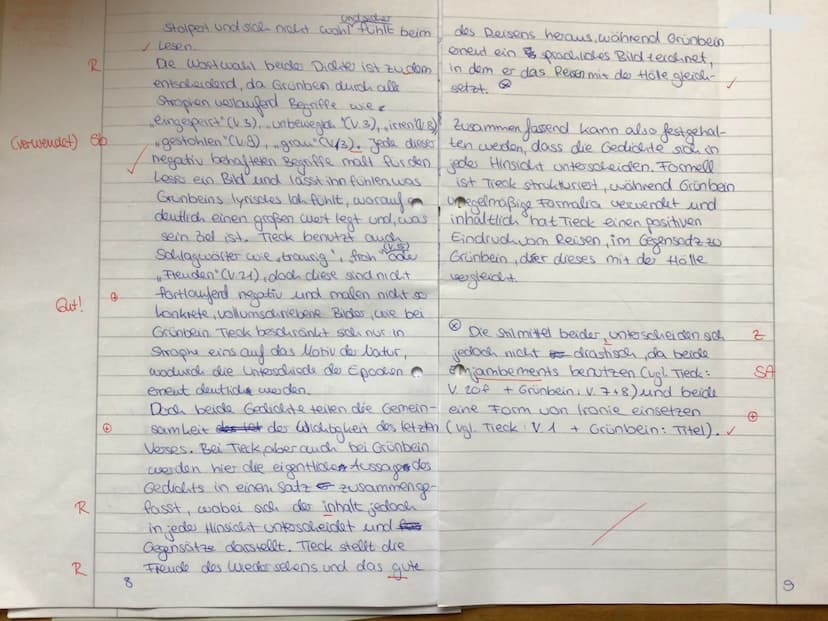 und sicher
stolpert und sich nicht wohl fühlt beim
Lesen.
R Die Wortwahl beider Dichter ist zudem
entscheidend, da Grünbein durch alle
Strophen verlaufend Begriffe wie
„eingesperrt" (V.3), „unbeweglich" (V.3), „irren" (V.8),
(verwendet) Sb „gestohlen" (V.8), „grau" (V.13). Jede dieser
negativ behafteten Begriffe malt für den
Leser ein Bild und lässt ihn fühlen was
Grünbeins lyrisches Ich fühlt, worauf er
deutlich einen großen Wert legt und, was
sein Ziel ist. Tieck benutzt auch
Schlagwörter wie „traurig", „froh" (V.5) oder
„Freuden" (V.21), doch diese sind nicht
Gut! ⊕ fortlaufend negativ und malen nicht so
konkrete, vollumschriebene Bilder, wie bei
Grünbein. Tieck beschränkt sich nur in
Strophe eins auf das Motiv der Natur,
wodurch die Unterschiede der Epochen
erneut deutlich werden.
Doch beide Gedichte teilen die Gemein-
⊕ samkeit der Wichtigkeit des letzten
Verses. Bei Tieck, aber auch bei Grünbein
werden hier die eigentlichen Aussagen des
Gedichts in einem Satz zusammenge-
R fasst, wobei sich der inhalt jedoch
in jeder Hinsicht unterscheidet und
Gegensätze darstellt. Tieck stellt die
R Freude des Wiedersehens und das gute
8
des Reisens heraus, während Grünbein
erneut ein sprachliches Bild zeichnet,
in dem er das Reisen mit der Hölle gleich-
setzt. ⊗
Zusammenfassend kann also festgehal-
ten werden, dass die Gedichte sich in
jeder Hinsicht unterscheiden. Formell
ist Tieck strukturiert, während Grünbein
unregelmäßige Formalia verwendet und
inhaltlich hat Tieck einen positiven
Eindruck vom Reisen, im Gegensatz zu
Grünbein, der dieses mit der Hölle
vergleicht.
⊗ Die Stilmittel beider, unterscheiden sich Z
jedoch nicht drastisch, da beide
Enjambements benutzen (vgl. Tieck: SA
V. 20f + Grünbein: V. 7+8) und beide
eine Form von Ironie einsetzen ⊕
(vgl. Tieck: V.1 + Grünbein: Titel).
9